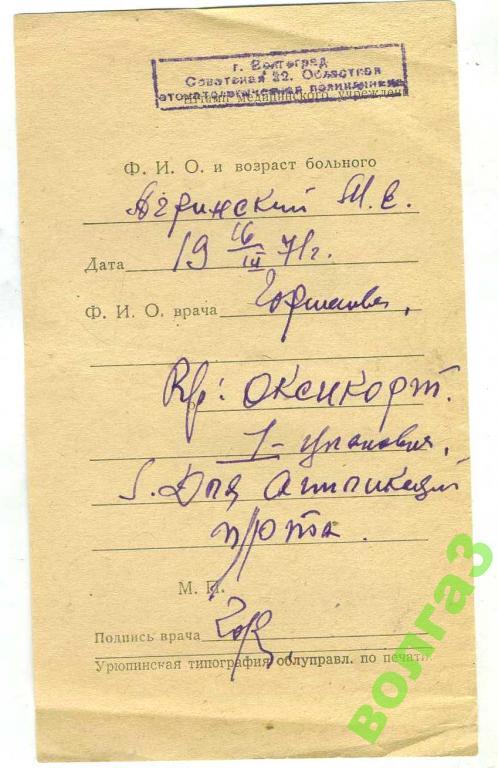 г. Волгоград
Советская 22. Областная
стоматологическая поликлиника
Штамп медицинского учрежден
Ф. И. О. и возраст больного
М. Е.
Дата 19 16/III 71г.
Ф. И. О. врача Горшкова,
Rp: Оксикорт.
1 - упаковка,
S. Для аппликаций
п/рта.
М. П.
Подпись врача
Урюпинская типография облуправл. по печати.
волга3